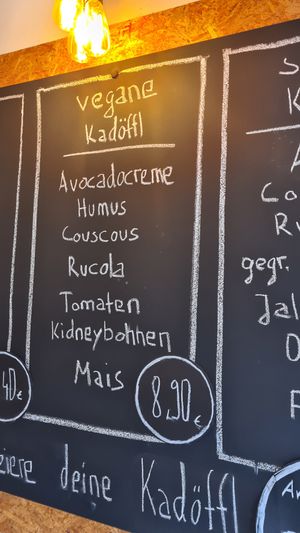 vegane
Kadöffl
Avocadocreme
Humus
Couscous
Rucola
Tomaten
Kidneybohnen
Mais
8,90€
40€
gegr.
deine Kadöffl